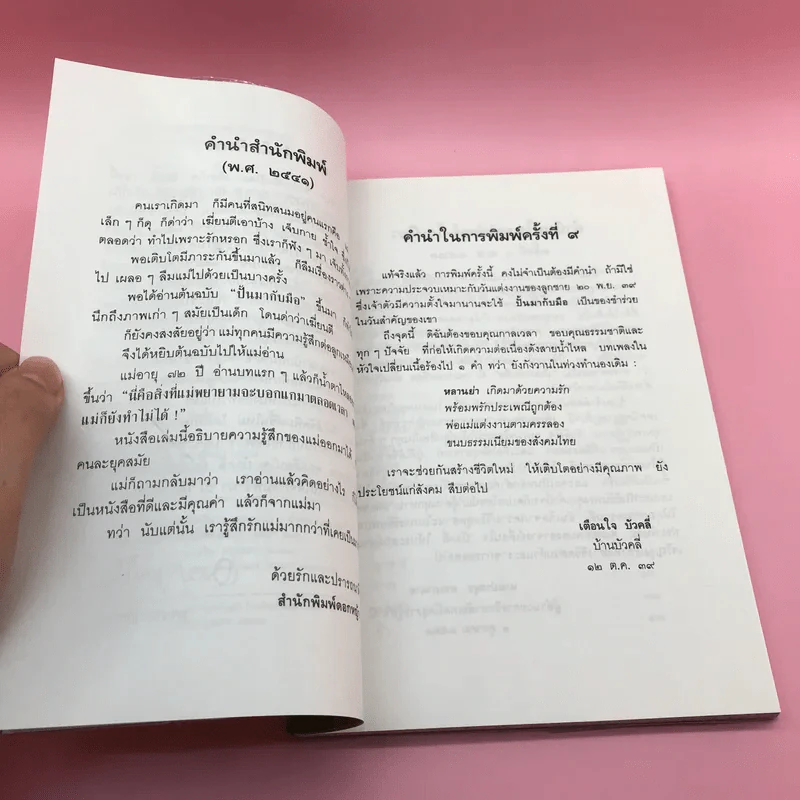 คำนำสำนักพิมพ์
(พ.ศ. ๒๕๔๑)
คนเราเกิดมา ก็มีคนที่สนิทสนมอยู่คนแรกคือ
เล็ก ๆ ก็ดุ ก็ด่าว่า เฆี่ยนตีเอาบ้าง เจ็บกาย ช้ำใจ
ตลอดว่า ทำไปเพราะรักหรอก ซึ่งเราก็ฟัง ๆ มา
พอเติบโตมีภาระกันขึ้นมาแล้ว ก็ลืมเรื่องราว
ไป เผลอ ๆ ลืมแม่ไปด้วยเป็นบางครั้ง
พอได้อ่านต้นฉบับ "ปั้นมากับมือ" ขึ้นมา
นึกถึงภาพเก่า ๆ สมัยเป็นเด็ก โดนด่าว่าเฆี่ยนตี
ก็ยังคงสงสัยอยู่ว่า แม่ทุกคนมีความรู้สึกต่อลูก
จึงได้หยิบต้นฉบับไปให้แม่อ่าน
แม่อายุ ๗๒ ปี อ่านบทแรก ๆ แล้วก็น้ำตาไหล
ขึ้นว่า "นี่คือสิ่งที่แม่พยายามจะบอกแกมาตลอดเวลา
แม่ก็ยังทำไม่ได้ !"
หนังสือเล่มนี้อธิบายความรู้สึกของแม่ออกมาได้
คนละยุคสมัย
แม่ก็ถามกลับมาว่า เราอ่านแล้วคิดอย่างไร
เป็นหนังสือที่ดีและมีคุณค่า แล้วก็จากแม่มา
ทว่า นับแต่นั้น เรารู้สึกรักแม่มากกว่าที่เคยเป็น
ด้วยรักและปรารถนา
สำนักพิมพ์ดอกหญ้า
คำนำในการพิมพ์ครั้งที่ ๙
แท้จริงแล้ว การพิมพ์ครั้งนี้ คงไม่จำเป็นต้องมีคำนำ ถ้ามิใช่
เพราะความประจวบเหมาะกับวันแต่งงานของลูกชาย ๒๐ พ.ย. ๓๙
ซึ่งเจ้าตัวมีความตั้งใจมานานจะใช้ ปั้นมากับมือ เป็นของชำร่วย
ในวันสำคัญของเขา
ถึงจุดนี้ ดิฉันต้องขอบคุณกาลเวลา ขอบคุณธรรมชาติและ
ทุก ๆ ปัจจัย ที่ก่อให้เกิดความต่อเนื่องดังสายน้ำไหล บทเพลงใน
หัวใจเปลี่ยนเนื้อร้องไป ๑ คำ ทว่า ยังกังวานในท่วงทำนองเดิม :
หลานย่า เกิดมาด้วยความรัก
พร้อมพรักประเพณีถูกต้อง
พ่อแม่แต่งงานตามครรลอง
ขนบธรรมเนียมของสังคมไทย
เราจะช่วยกันสร้างชีวิตใหม่ ให้เติบโตอย่างมีคุณภาพ ยัง
ประโยชน์แก่สังคม สืบต่อไป
เตือนใจ บัวคลี่
บ้านบัวคลี่
๑๒ ต.ค. ๓๙